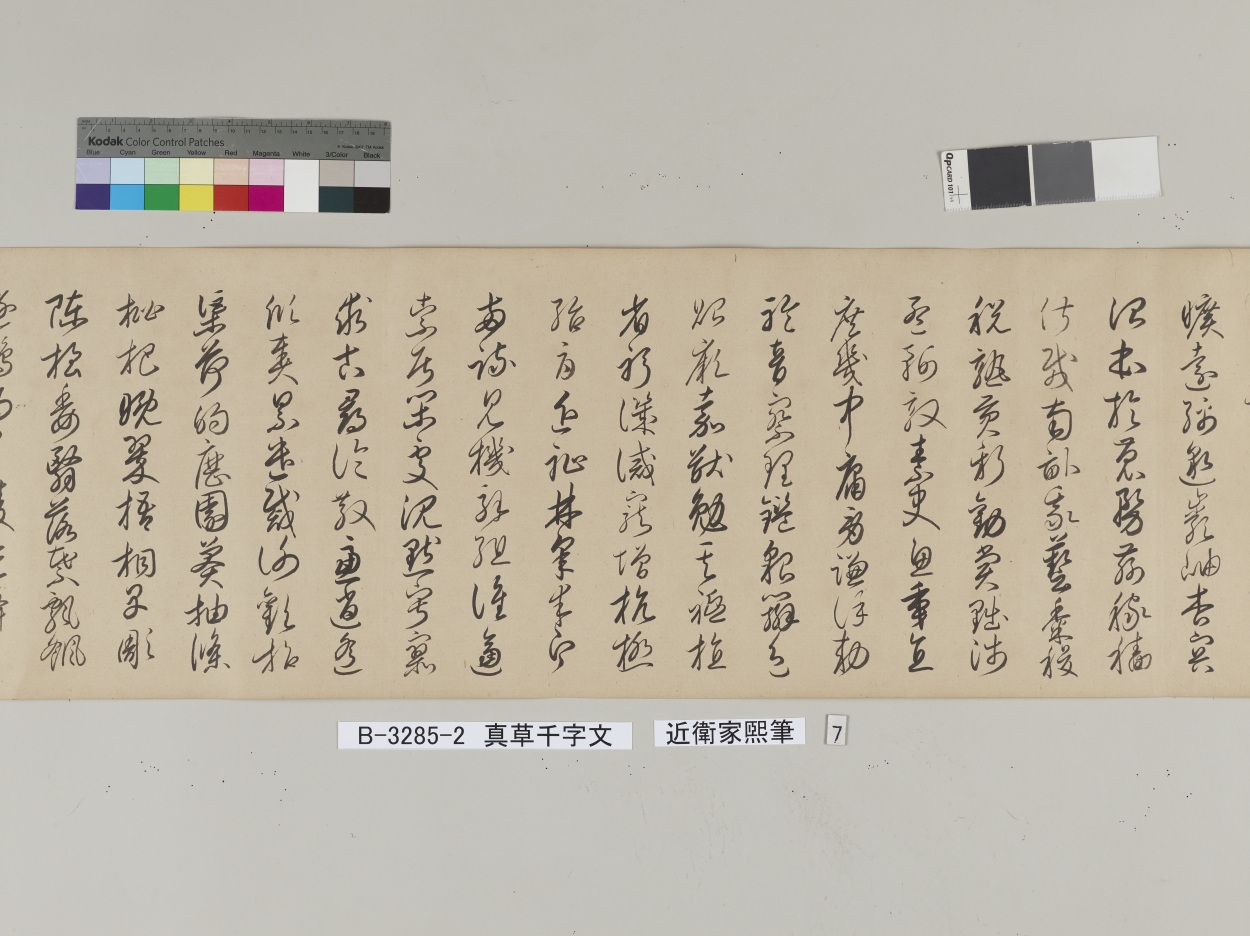 Kodak Color Control Patches
Blue Cyan Green Yellow Red Magenta White 3/Color Black
QPCARD 101
曠遠綿邈巖岫杳冥
治本於農務茲稼穡
俶載南畝我藝黍稷
稅熟貢新勸賞黜陟
孟軻敦素史魚秉直
庶幾中庸勞謙謹勅
聆音察理鑑貌辨色
貽厥嘉猷勉其祗植
省躬譏誡寵增抗極
殆辱近恥林皋幸即
兩疏見機解組誰逼
索居閑處沈默寂寥
求古尋論散慮逍遙
欣奏累遣慼謝歡招
渠荷的歷園莽抽條
枇杷晚翠梧桐早彫
陳根委翳落葉飄颻
B-3285-2 真草千字文 近衛家熙筆 7